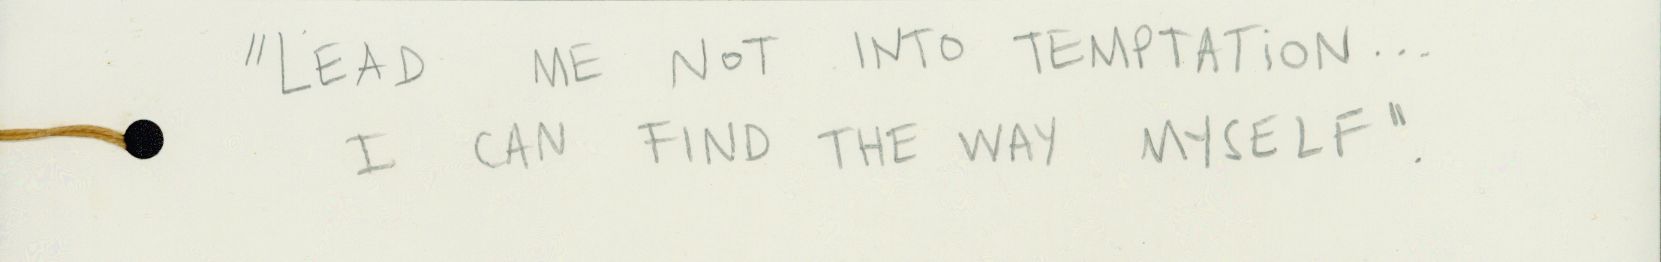 "LEAD ME NOT INTO TEMPTATiON...
I CAN FIND THE WAY MYSELF".